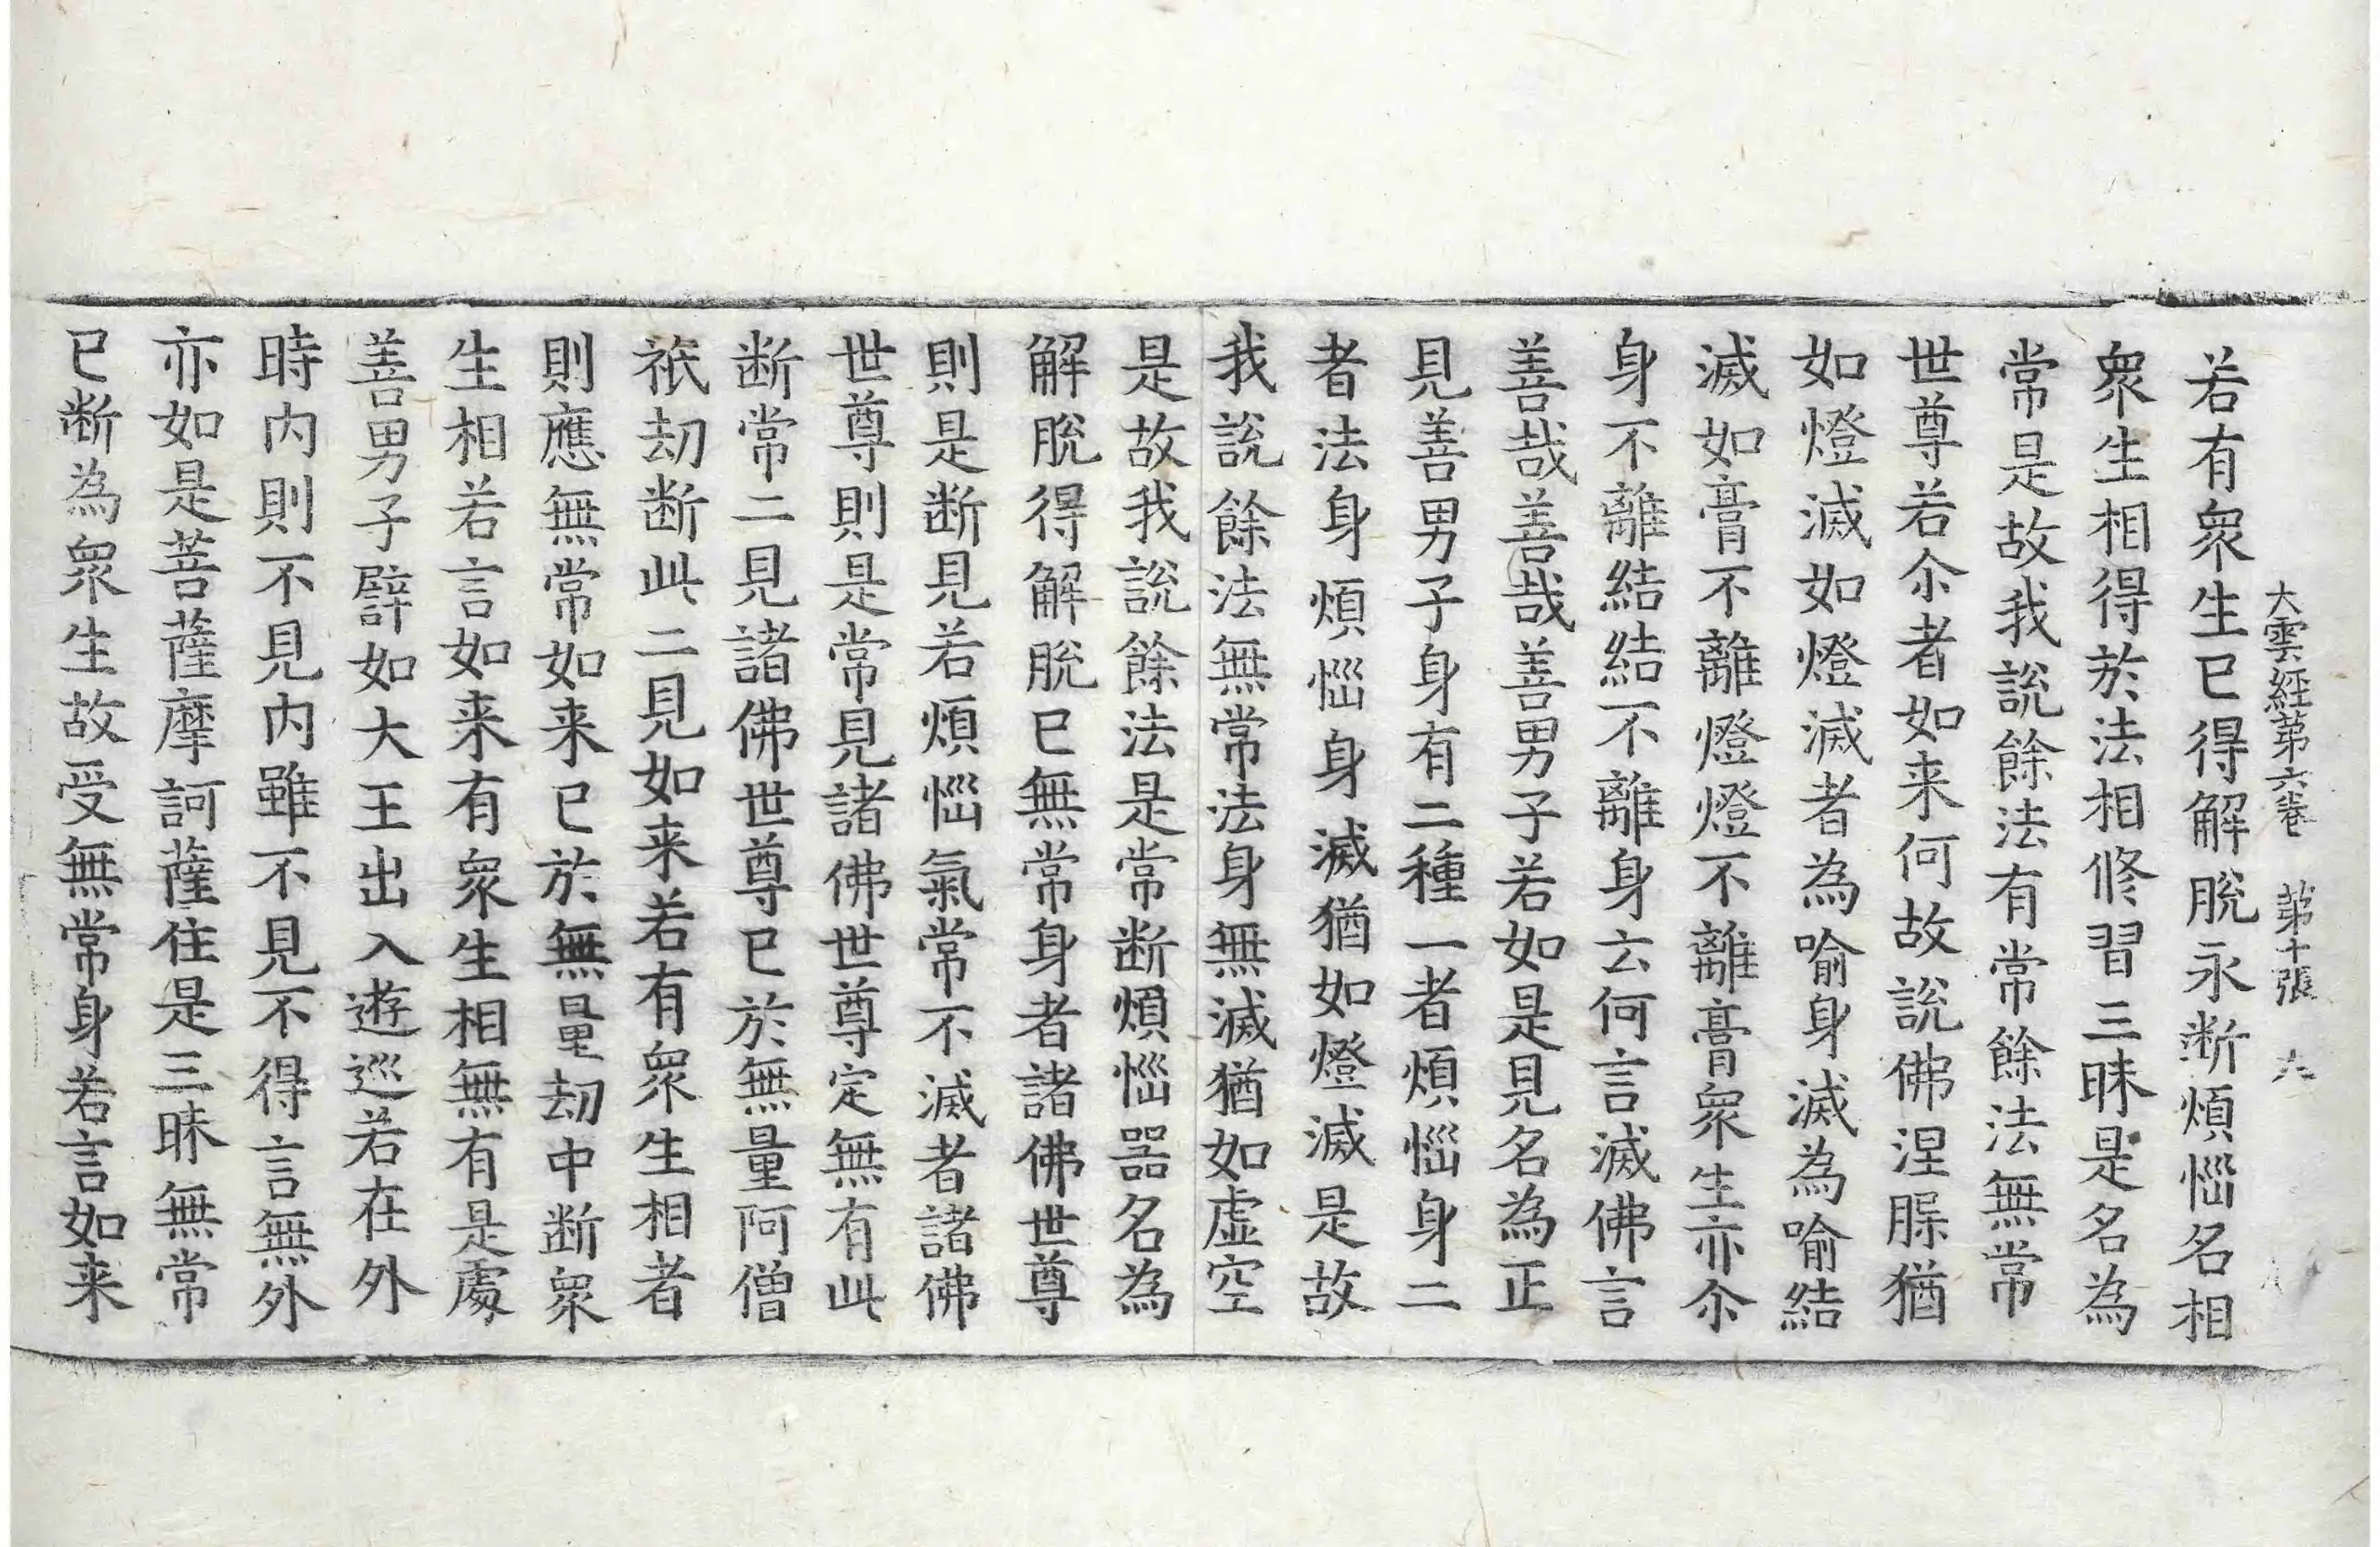 大雲經第六卷　第十張　六
若有衆生已得解脫永断煩惱名相
衆生相得於法相修習三昧是名為
常是故我說餘法有常餘法無常
世尊若尒者如来何故說佛涅槃猶
如燈滅如燈滅者為喻身滅為喻結
滅如膏不離燈燈不離膏衆生亦尒
身不離結結不離身云何言滅佛言
善哉善哉善男子若如是見名為正
見善男子身有二種一者煩惱身二
者法身煩惱身滅猶如燈滅是故
我說餘法無常法身無滅猶如虛空
是故我說餘法是常断煩惱器名為
解脫得解脫已無常身者諸佛世尊
則是断見若煩惱氣常不滅者諸佛
世尊則是常見諸佛世尊定無有此
断常二見諸佛世尊已於無量阿僧
祇劫断此二見如来若有衆生相者
則應無常如来已於無量劫中断衆
生相若言如来有衆生相無有是處
善男子譬如大王出入遊巡若在外
時内則不見内雖不見不得言無外
亦如是菩薩摩訶薩住是三昧無常
已断為衆生故受無常身若言如来